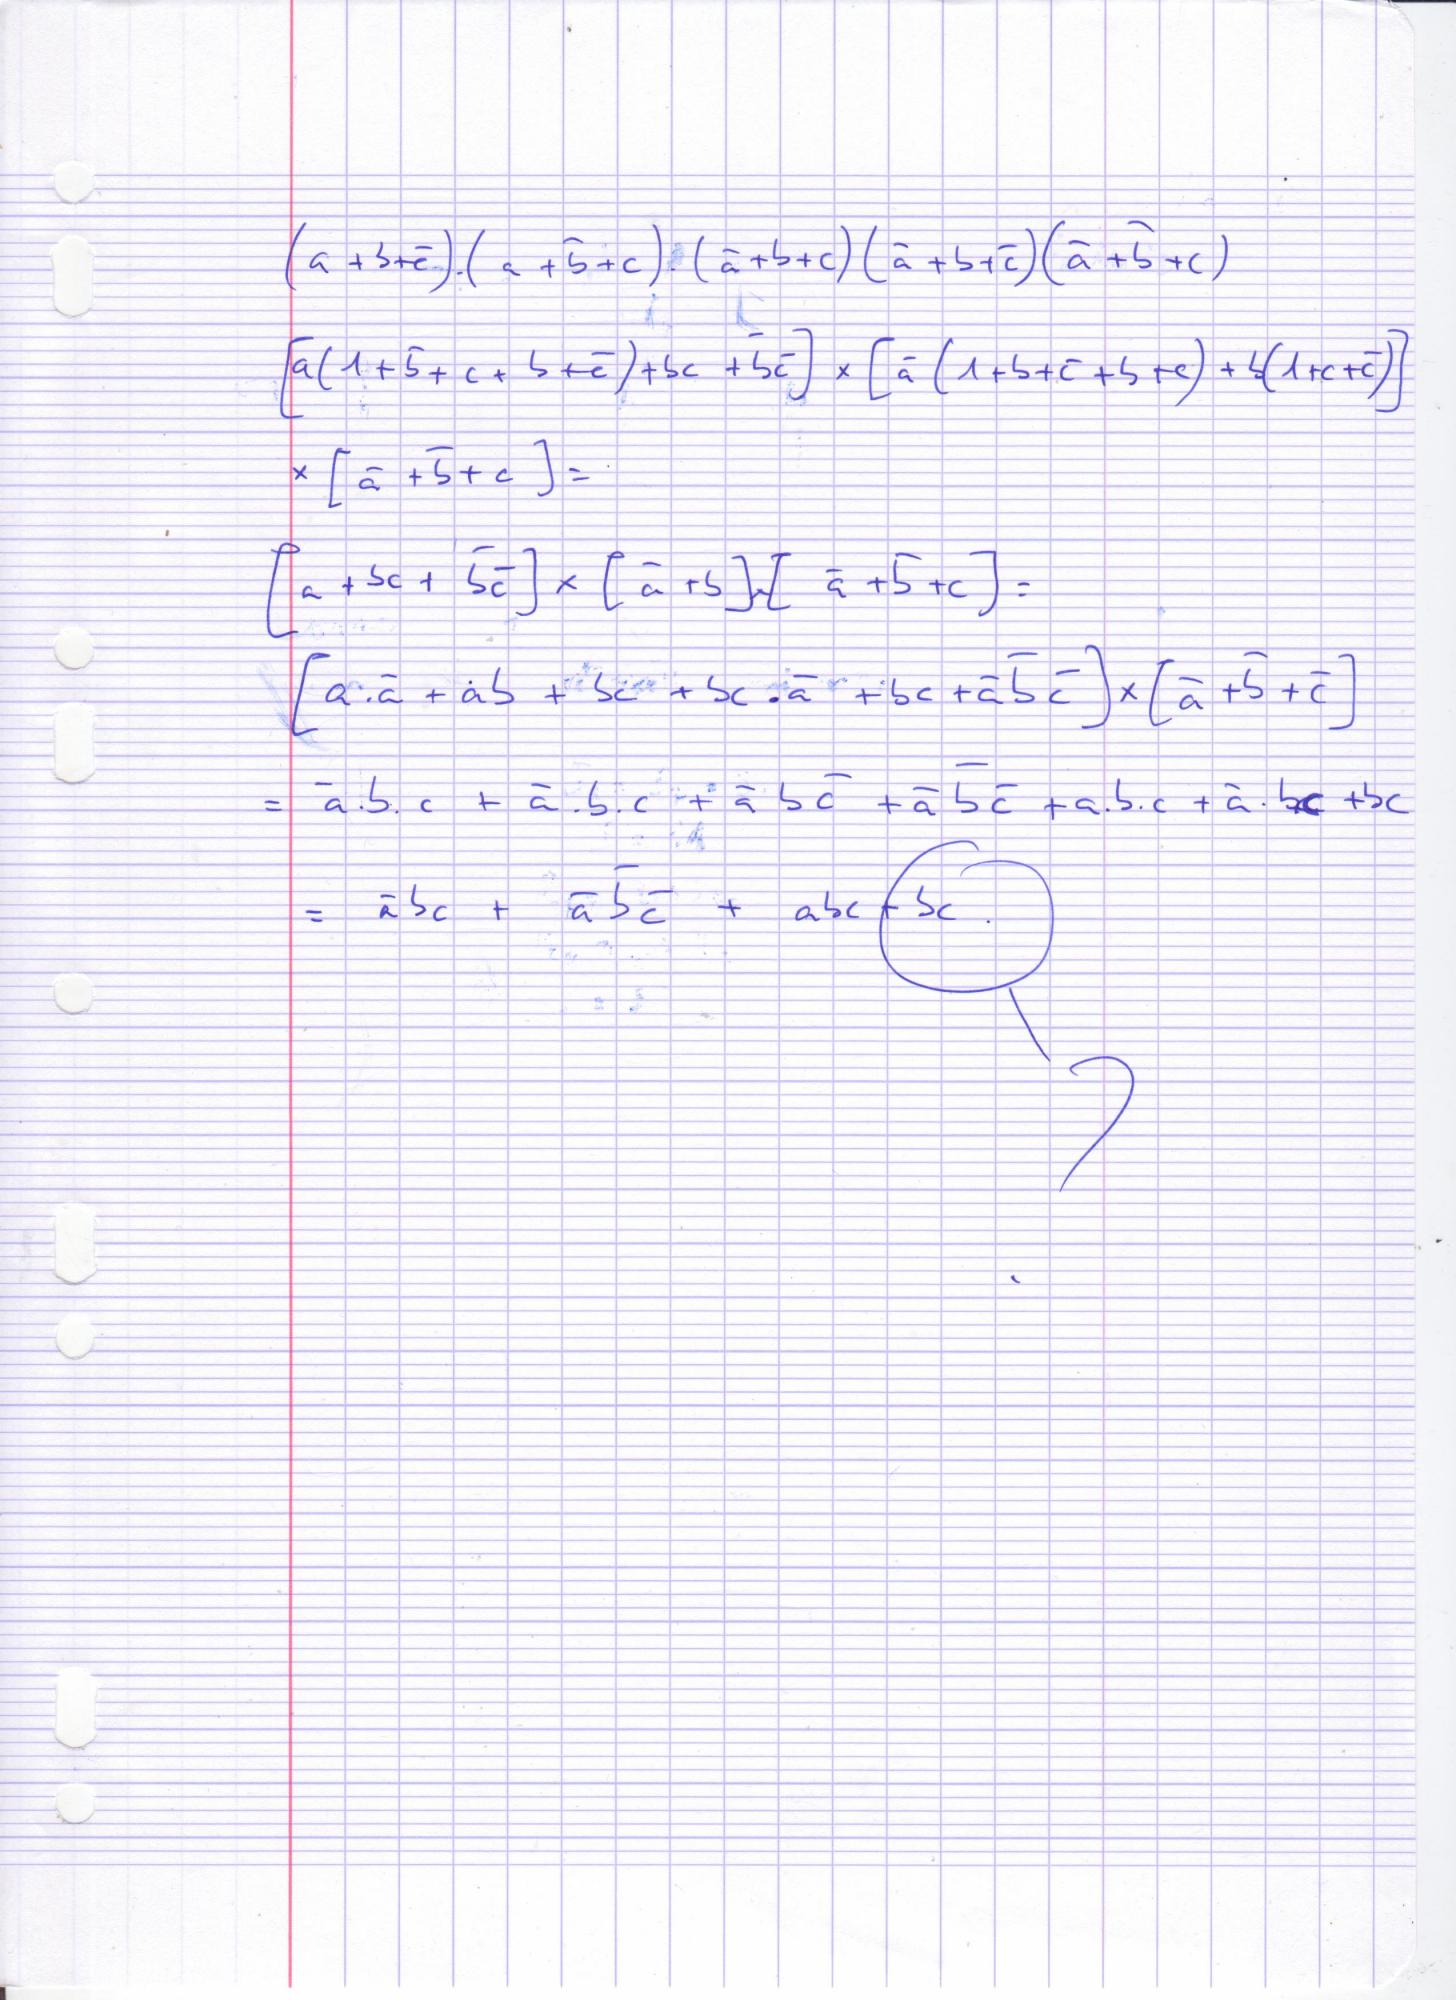 (a + b + c̄).(a + b̄ + c).(ā + b + c)(ā + b + c̄)(ā + b̄ + c)
[a(1 + b̄ + c + b + c̄) + bc + b̄c̄] × [ā(1 + b + c̄ + b + c) + b(1 + c + c̄)]
× [ā + b̄ + c] =
[a + bc + b̄c̄] × [ā + b].[ā + b̄ + c] =
[a.ā + ab + bc + bc.ā + bc + āb̄c̄] × [ā + b̄ + c̄]
= ā.b.c + ā.b.c + ābc̄ + āb̄c̄ + a.b.c + ā.bc + bc
= ābc + āb̄c̄ + abc + bc.
?